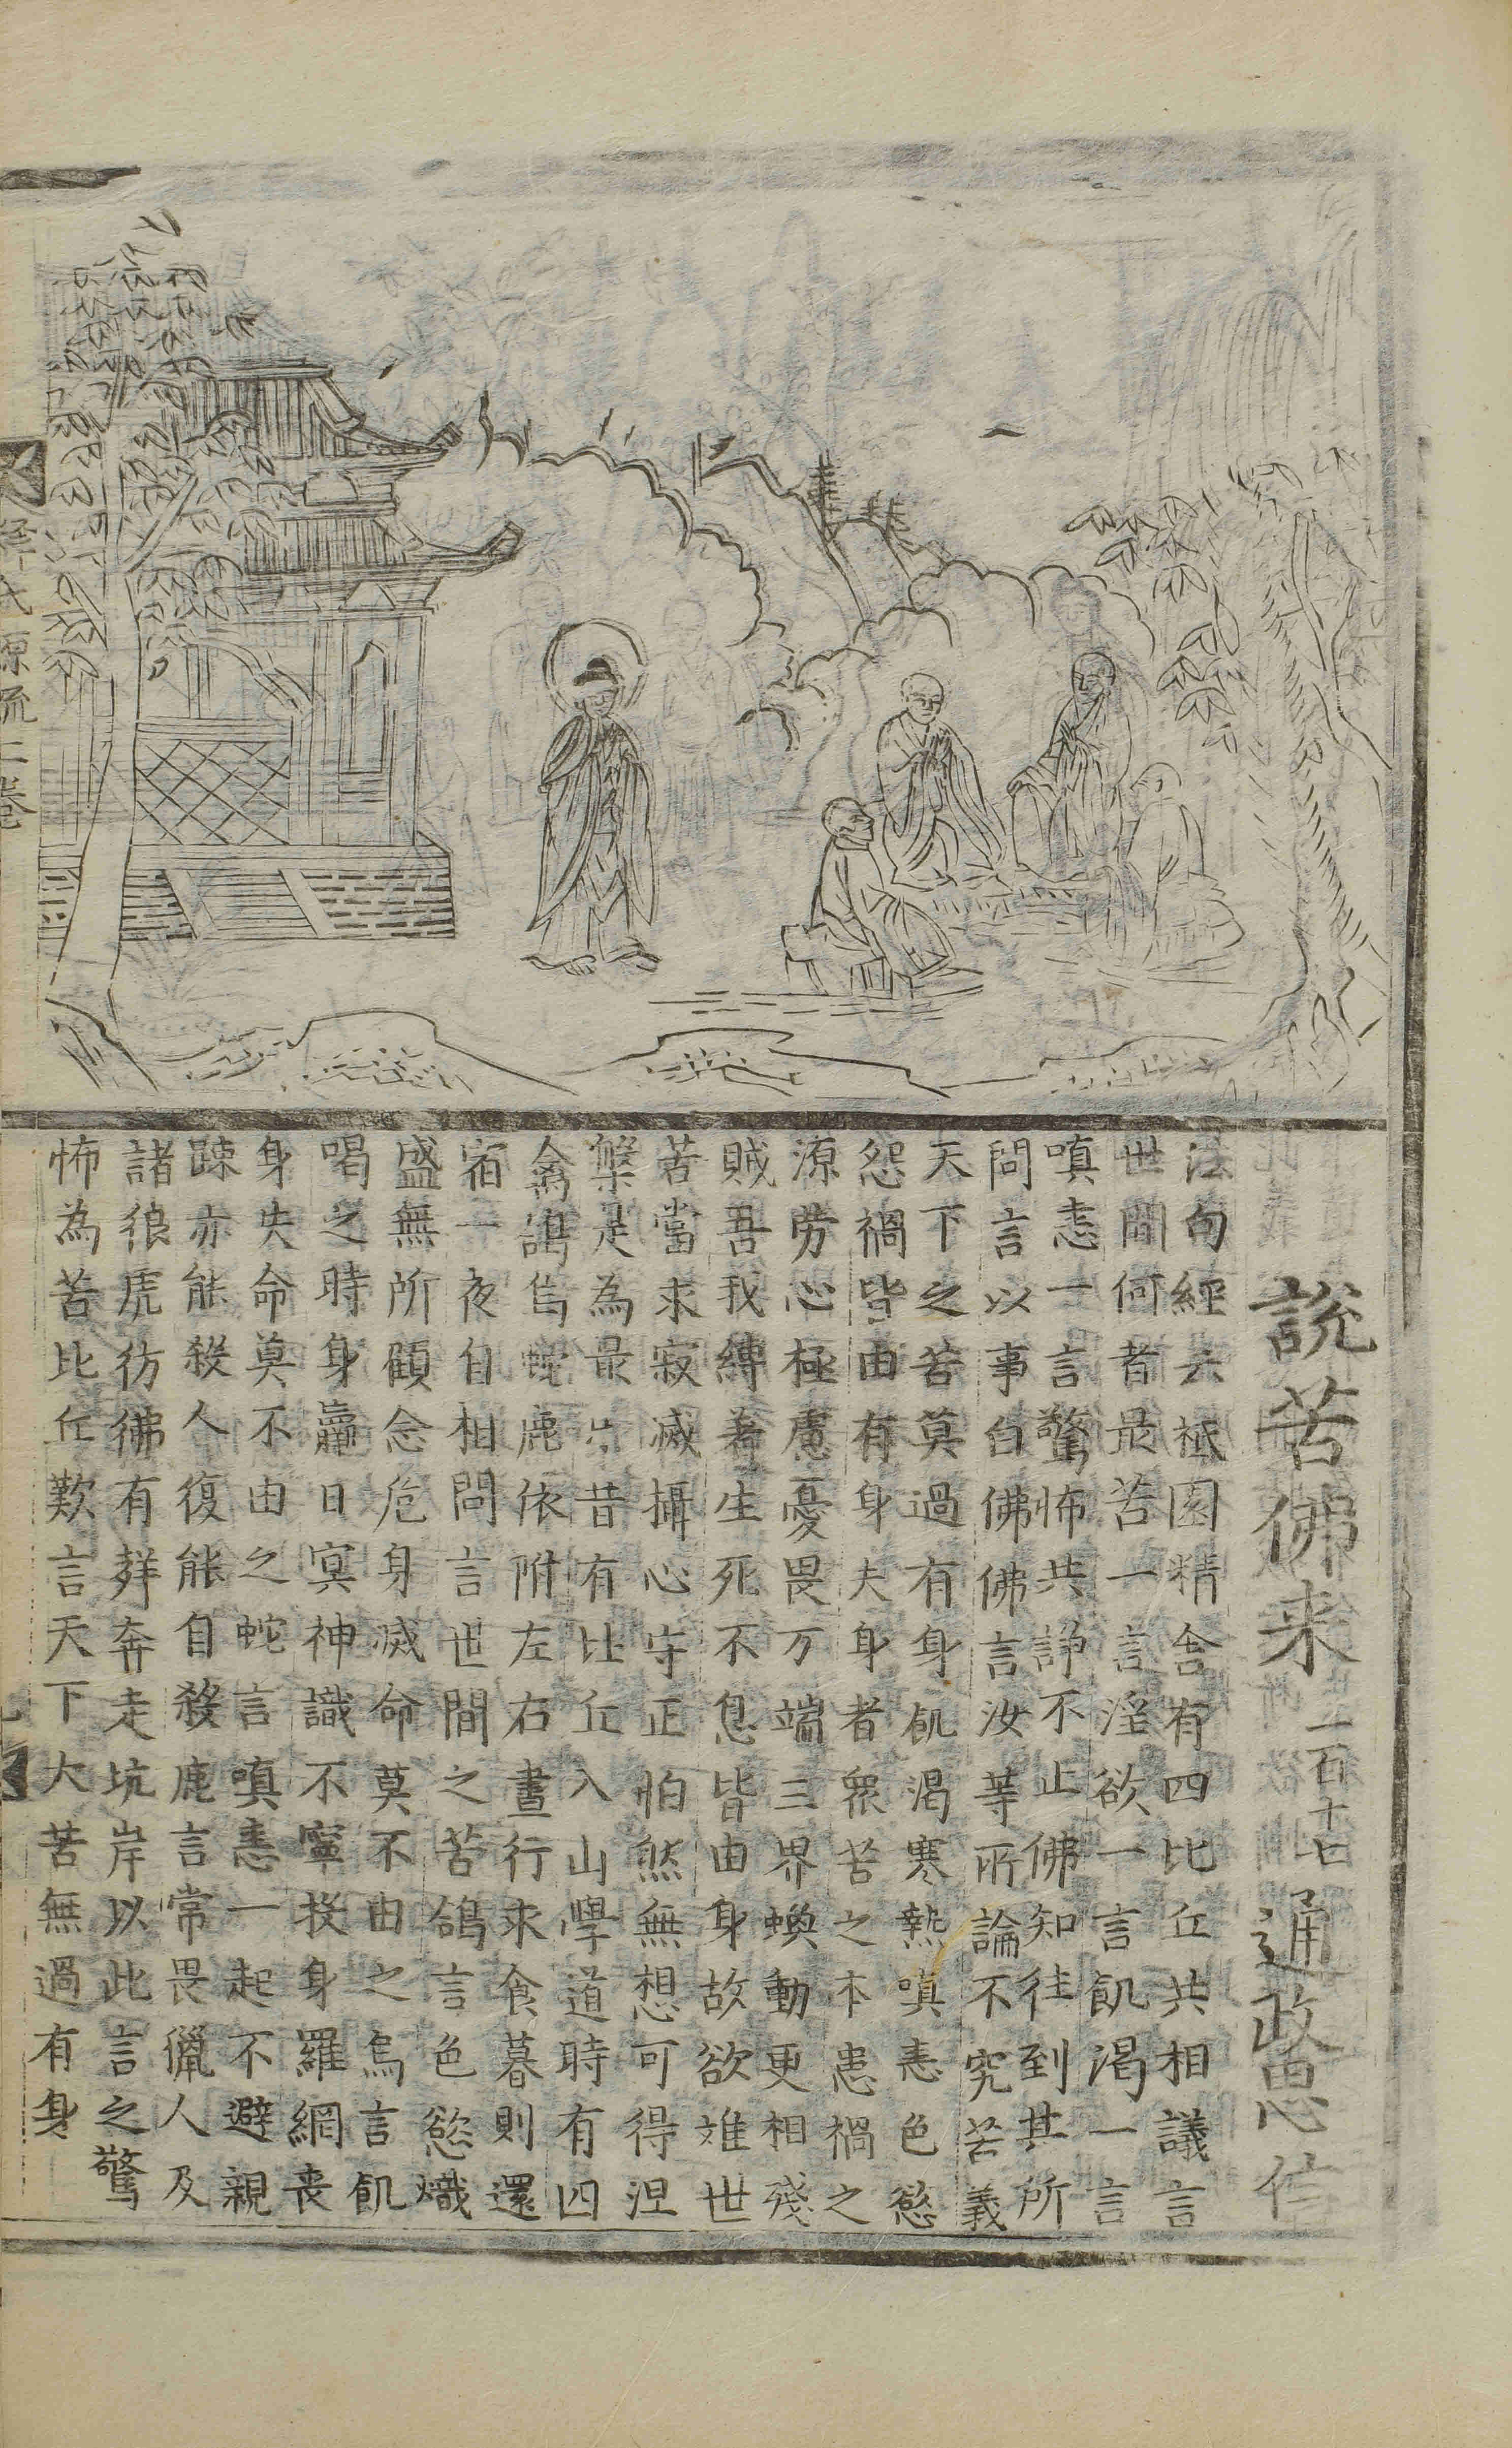 說苦佛来 一百十七 通政思信
法句經云祗園精舍有四比丘共相議言
世間何者最苦一言淫欲一言飢渴一言
嗔恚一言驚怖共諍不止佛知徃到其所
問言以事白佛佛言汝等所論不究苦義
天下之苦莫過有身飢渴寒熱嗔恚色慾
怨禍皆由有身夫身者衆苦之本患禍之
源劳心極慮憂畏万端三界蝡動更相殘
賊吾我縛著生死不息皆由身故欲離世
苦當求寂滅攝心守正怕然無想可得涅
槃是為最樂昔有比丘入山學道時有四
禽鴿烏蛇鹿依附左右晝行求食暮則還
宿一夜自相問言世間之苦鴿言色慾熾
盛無所顧念危身滅命莫不由之烏言飢
喝之時身羸目冥神識不寧投身羅網丧
身失命莫不由之蛇言嗔恚一起不避親
踈亦能殺人復能自殺鹿言常畏獵人及
諸狼虎彷彿有聲奔走坑岸以此言之驚
怖為苦比丘歎言天下大苦無過有身
釋氏源流二卷